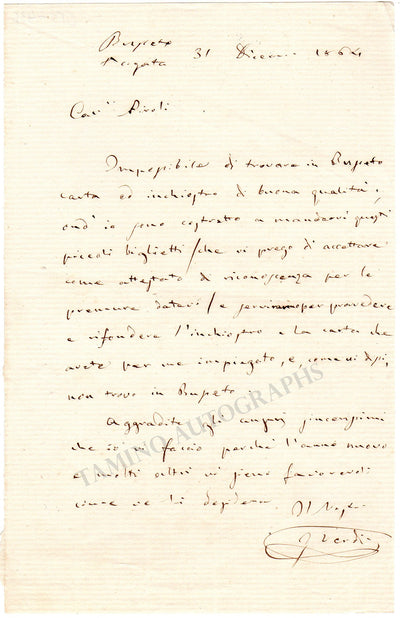 Busseto
S. Agata 31 Dicem 1864
Car.o Piroli
Impossibile di trovare in Busseto
carta ed inchiostro di buona qualità;
ond'io sono costretto a mandarvi questi
piccoli biglietti / che vi prego di accettare
come attestato di riconoscenza per le
premure datevi / e per provedere
e rifondere l'inchiostro e la carta che
avete per me impiegato, e, come vi dissi,
non trovo in Busseto.
Aggradite gli auguri sincerissimi
che io vi faccio perchè l'anno nuovo
e molti altri vi sieno favorevoli
come ve li desidera
Il
G Verdi
TAMINO AUTOGRAPHS